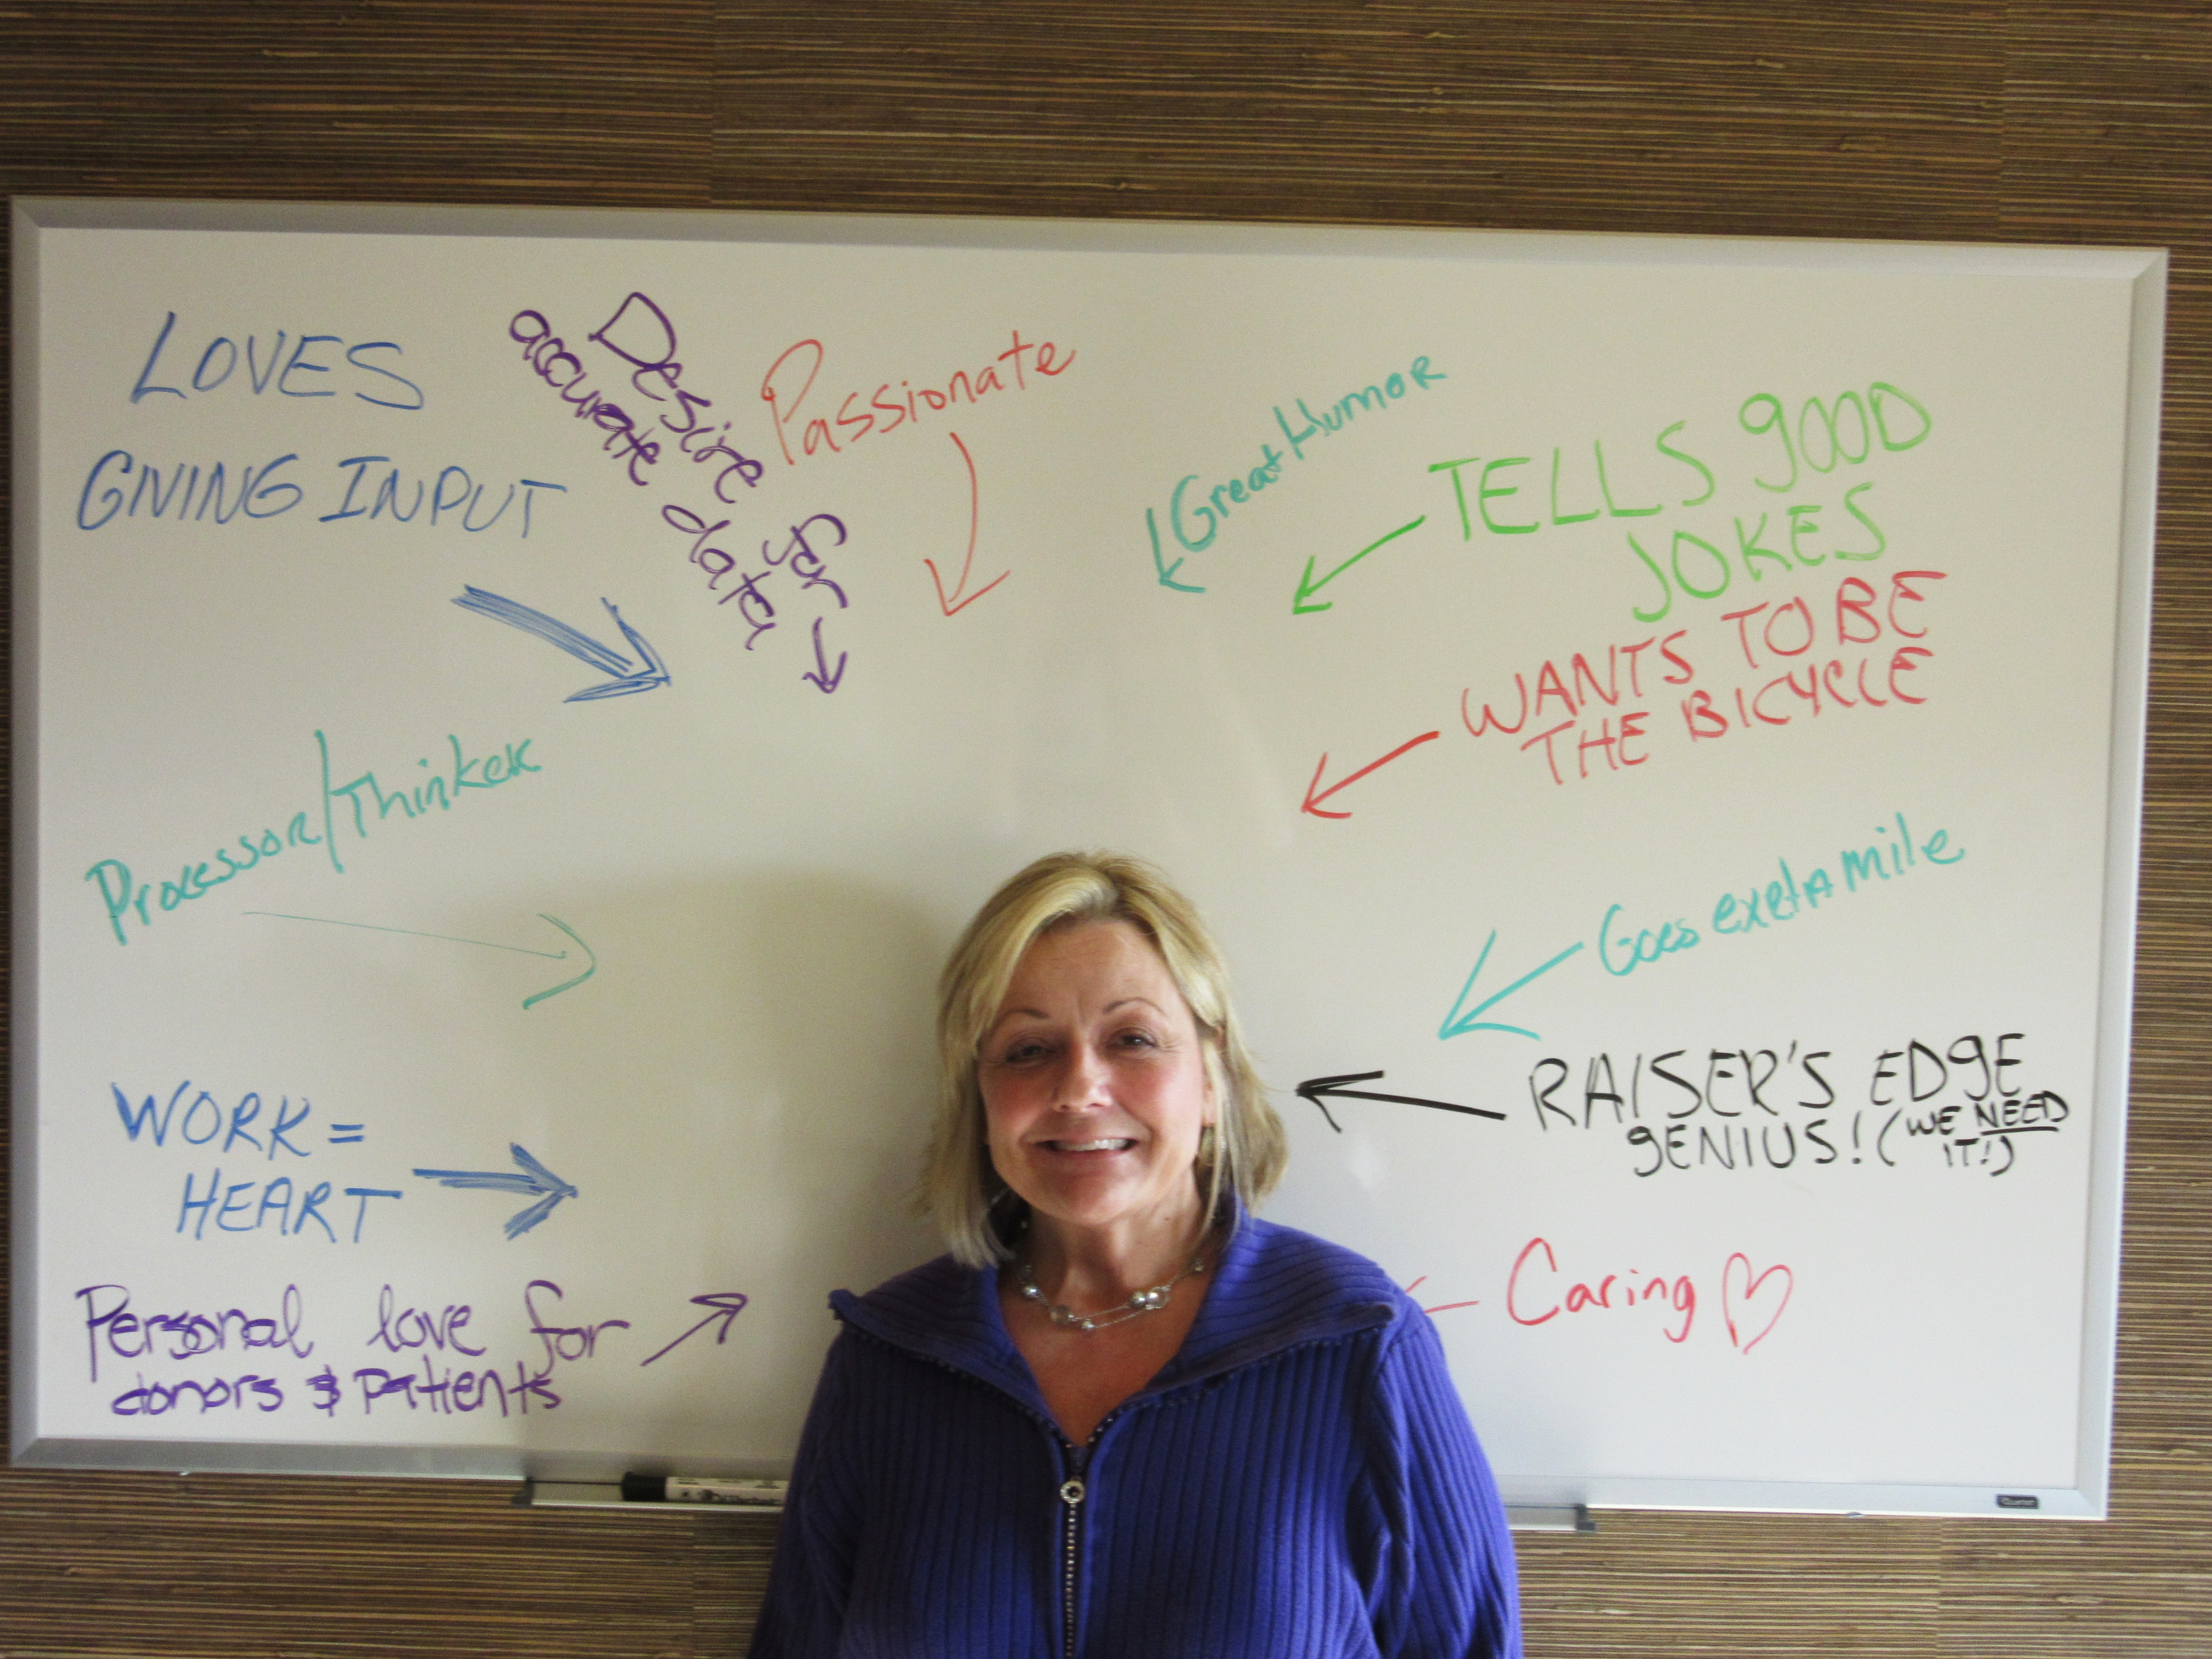 LOVES
GIVING INPUT
Desire for
accurate data
Passionate
Great Humor
TELLS GOOD
JOKES
WANTS TO BE
THE BICYCLE
Processor/Thinker
Goes extra mile
WORK =
HEART
RAISER'S EDGE
GENIUS! (WE NEED
IT!)
Personal love for
donors & patients
Caring